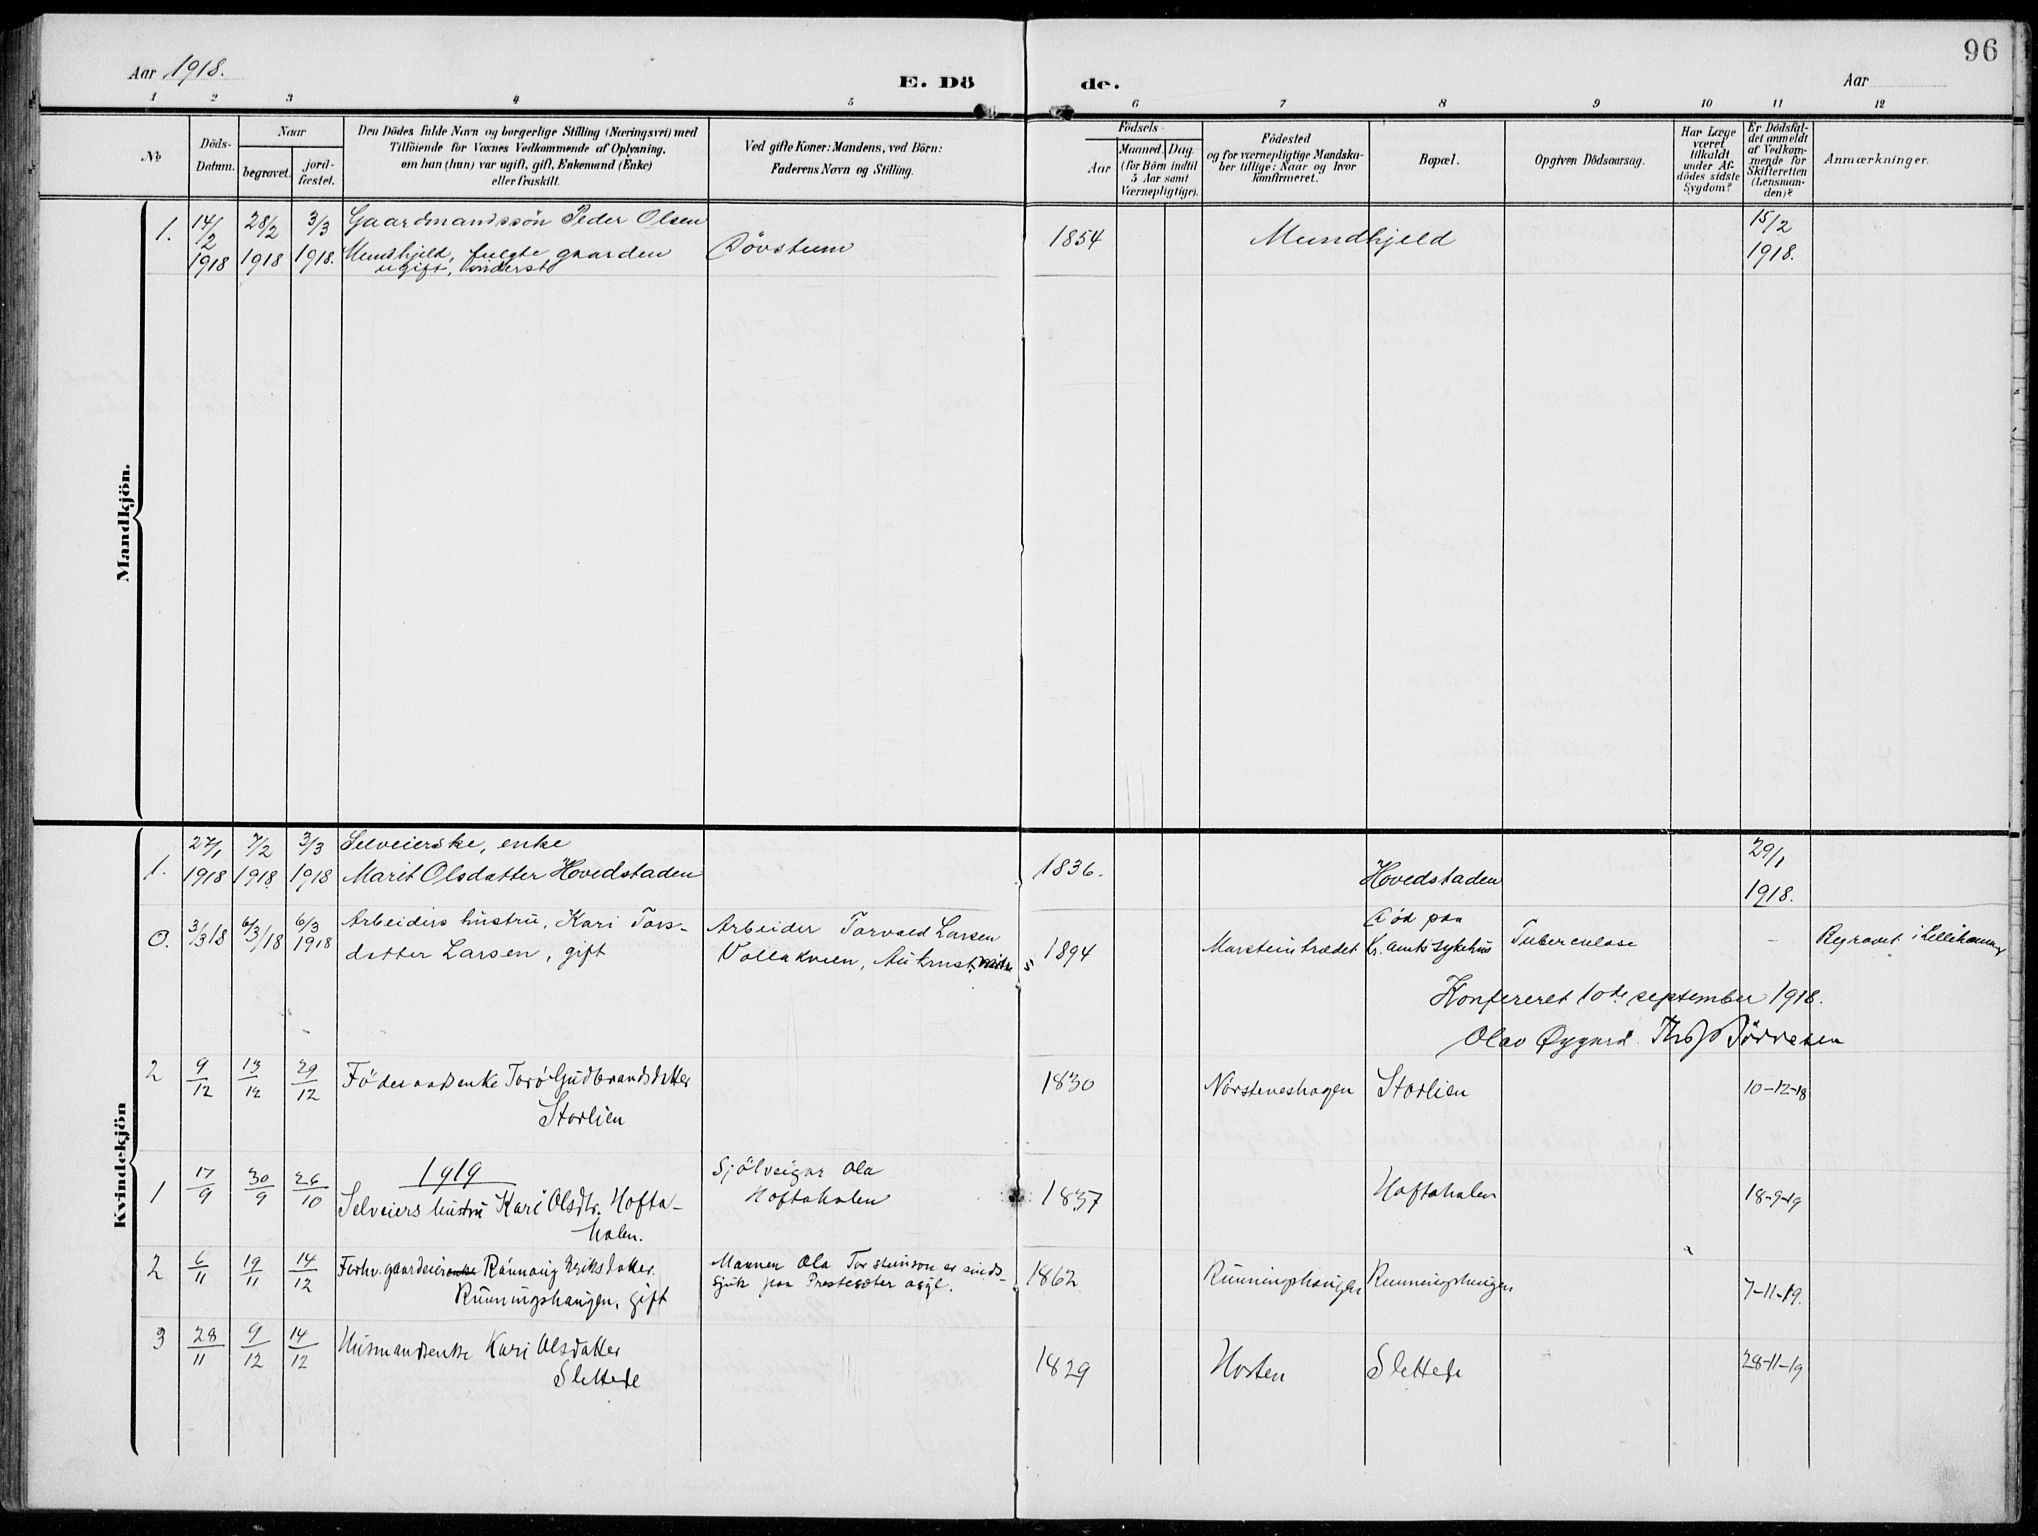 96
Aar 1918.
E. Dö de.
Aar
1 2 3 4 5 6 7 8 9 10 11 12
No
Döds-
Datum.
Naar
begravet.
jord-
fæstet.
Den Dödes fulde Navn og borgerlige Stilling (Næringsvei) med
Tilföiende for Voxnes Vedkommende af Oplysning,
om han (hun) var ugift, gift, Enkemand (Enke)
eller fraskilt.
Ved gifte Koner: Mandens, ved Börn:
Faderens Navn og Stilling.
Födsels-
Aar
Maaned. Dag.
(for Börn indtil
5 Aar samt
Værnepligtige).
Födested
og for værnepligtige Mandska-
ber tillige: Naar og hvor
konfirmeret.
Bopæl.
Opgiven Dödsaarsag.
Har Læge
været
tilkaldt
under Af-
dödes sidste
Sygdom?
Er Dödsfal-
det anmeldt
af Vedkom-
mende for
Skifteretten
(Lensman-
den)?
Anmærkninger.
Mandkjön.
1. 14/2 1918 28/2 1918 3/3 1918.
Gaardmandssön Peder Olsen
Mundhjeld, fulgte gaarden
ugift, underst
Dövstum
1854
Mundhjeld
15/2
1918.
Kvindekjön
1. 27/1 1918 7/2 1918 3/3 1918
Selveierske, enke
Marit Olsdatter Hovedstaden
1836.
Hovedstaden
29/1
1918.
0. 3/3 18 6/3 18 6/3 1918
Arbeiders hustru, Kari Tors-
datter Larsen, gift
Arbeider Torvald Larsen
Vollakvien,
1894
Marsteintrædet
Död paa
Kr. amts sykehus
Tuberculose
-
Begravet i Lillehammer
Konfereret 10de september 1918.
Olav Øygard.
2 9/12 13/12 29/12
Föderaadsenke Torö Gudbrandsdatter
Storlien
1830
Nörsteneshagen
Storlien
10-12-18
1919
1 17/9 30/9 26/10
Selveiers hustru Kari Olsdtr. Hofta-
halen.
Sjölveigar Ola
Hoftahalen
1837
Hoftahalen
18-9-19
2 6/11 19/11 14/12
Forhv. gaardeierenke Rönnaug Eriksdatter
Runningshaugen, gift
Mannen Ola Torsteinson er sinds-
sjuk paa Presteseter asyl.
1862
Runningshaugen
Runningshaugen
7-11-19.
3 28/11 9/12 14/12
Husmandsenke Kari Olsdatter
Slettede
1829
Horten
Slettede
28-11-19